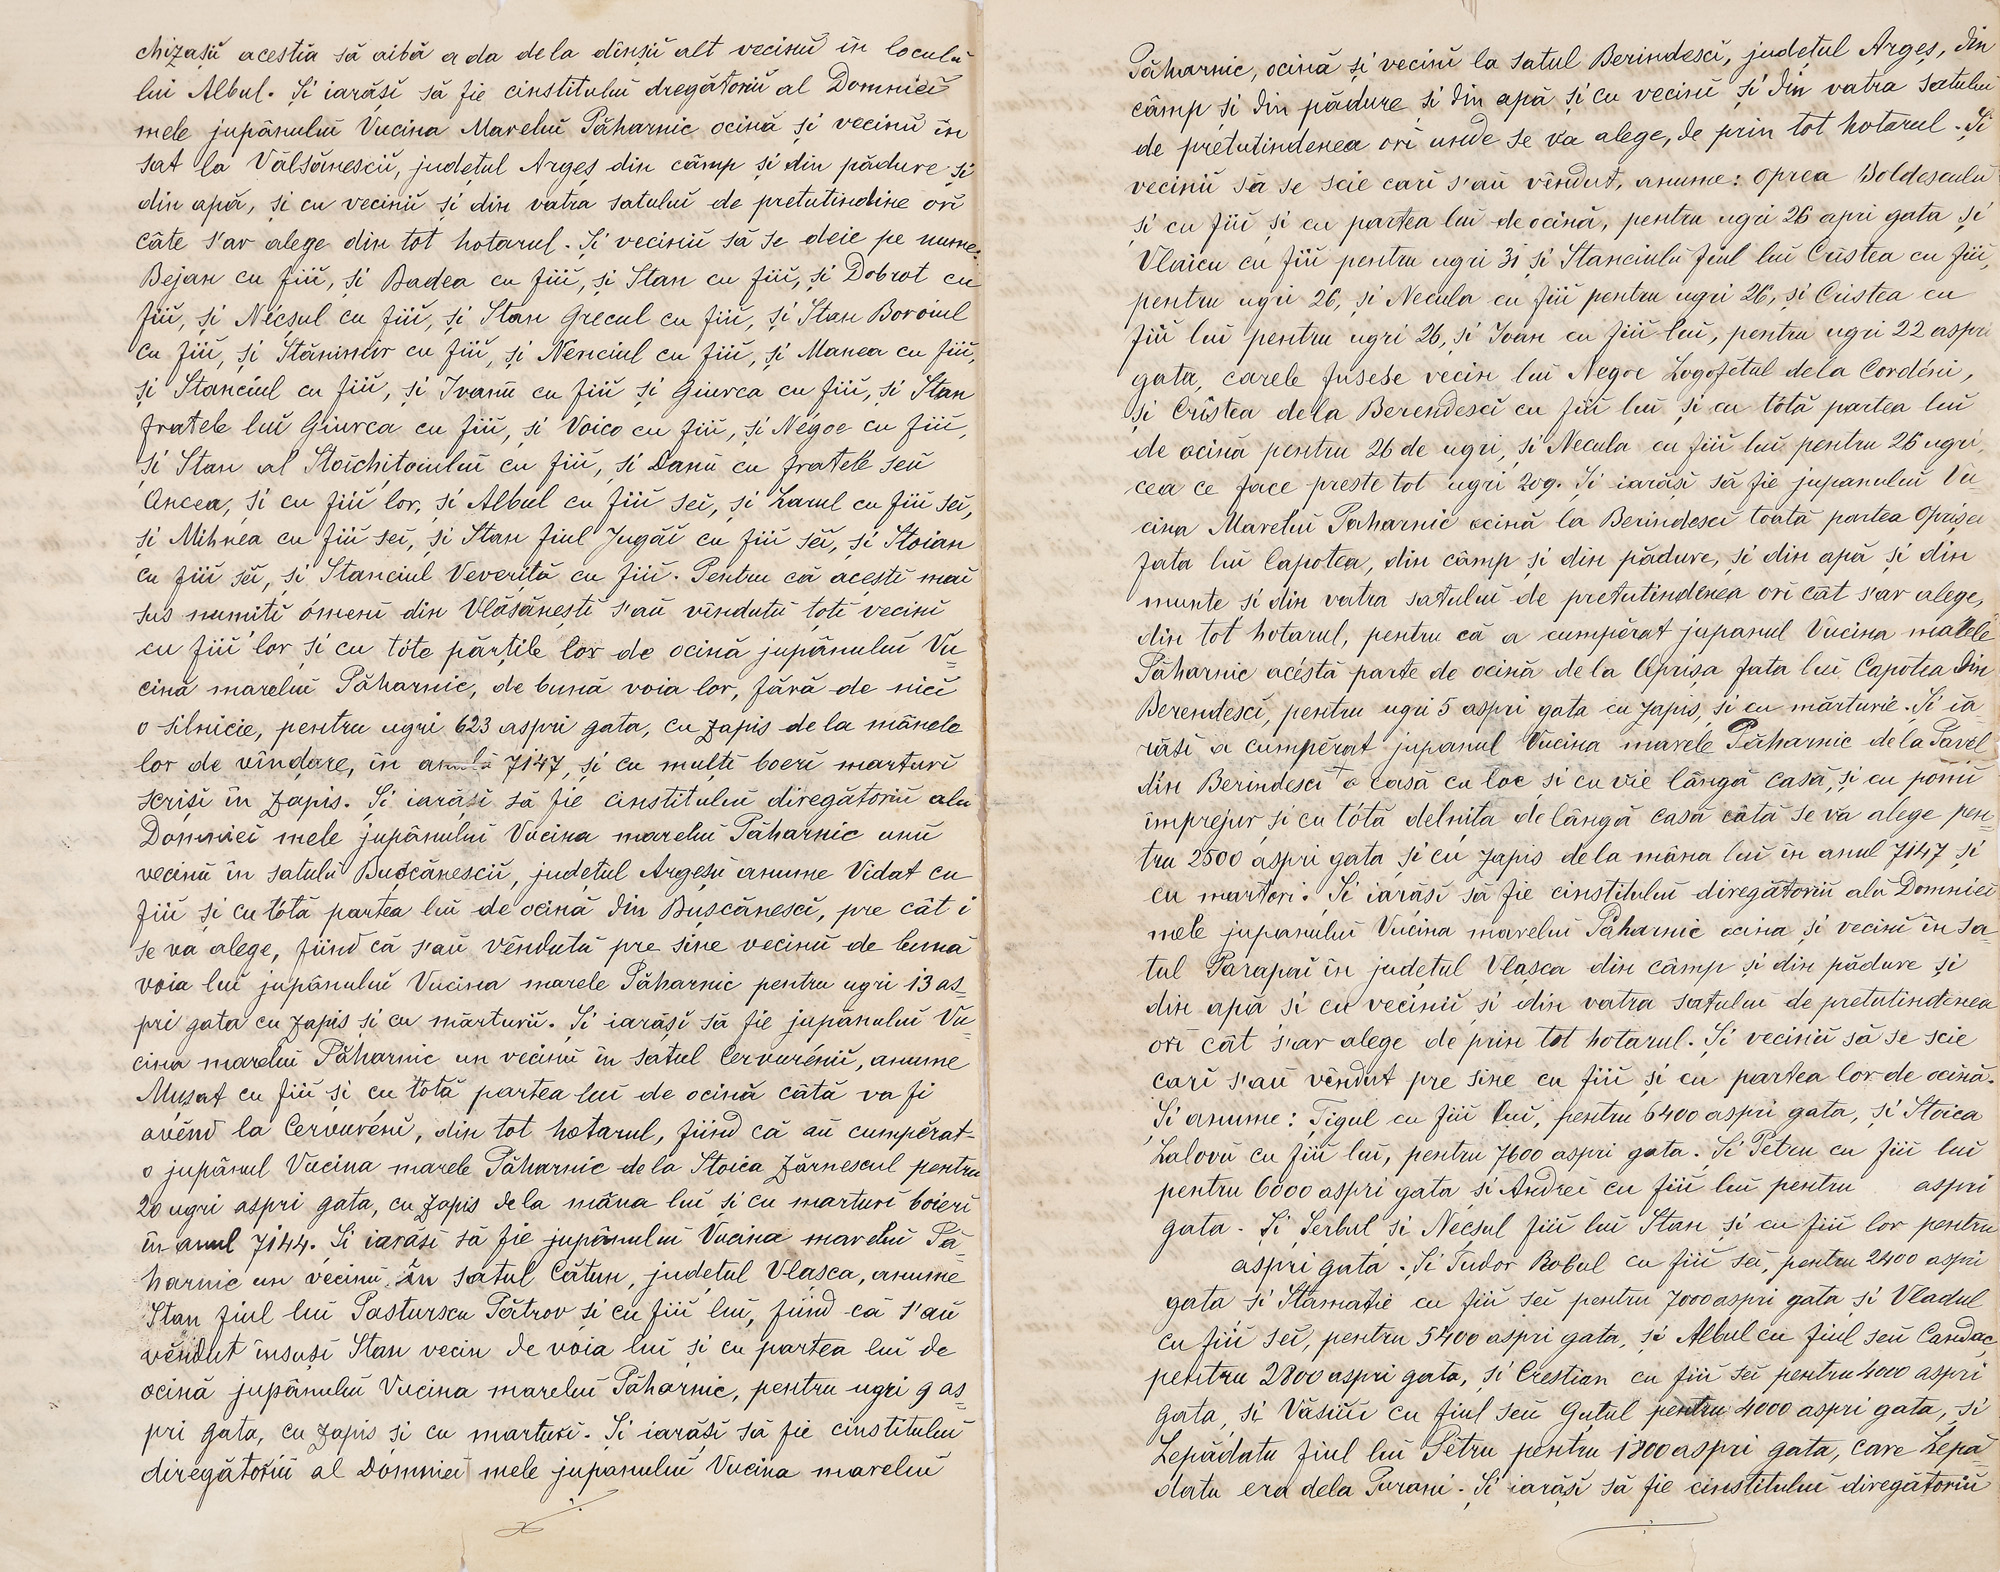 chizașiĭ acestia să aibă a da de la dînșiĭ alt vecinŭ în loculŭ
luĭ Albul. Și iarășĭ să fie cinstituluĭ dregătoriŭ al Domnieĭ
mele jupânuluĭ Vucina Mareluĭ Păharnic ocină și vecinĭ în
sat la Vălsănesciĭ, județul Argeș din câmp și din pădure și
din apă, și cu veciniĭ și din vatra satuluĭ de pretutindine orĭ
câte s'ar alege din tot hotarul. Și veciniĭ să se deie pe nume:
Bejan cu fiiĭ, și Badea cu fiiĭ, și Stan cu fiiĭ, și Dobrot cu
fiiĭ, și Nécșul cu fiiĭ, și Stan Grecul cu fiiĭ, și Stan Boroiul
cu fiiĭ, și Stănimir cu fiiĭ, și Nenciul cu fiiĭ, și Manea cu fiiĭ,
și Stanciul cu fiiĭ, și Ivanŭ cu fiiĭ și Giurca cu fiiĭ, și Stan
fratele luĭ Giurca cu fiiĭ, si Voico cu fiiĭ, și Négoe cu fiiĭ,
și Stan al Stoichitoiuluĭ cu fiiĭ, și Danŭ cu fratele seŭ
Oncea, și cu fiiĭ lor, și Albul cu fiiĭ seĭ, și Larul cu fiiĭ seĭ,
și Mihnea cu fiiĭ seĭ, și Stan fiul Jugăĭ cu fiiĭ seĭ, și Stoian
cu fiiĭ seĭ, și Stanciul Veverită cu fiiĭ. Pentru că aceștĭ maĭ
sus numitĭ ómenĭ din Vlăsăneștĭ s'aŭ vîndutŭ toțĭ vecinĭ
cu fiiĭ lor și cu tóte părțile lor de ocină jupânuluĭ Vu-
cină mareluĭ Păharnic, de bună voia lor, fără de nicĭ
o silnicie, pentru ugri 623 aspri gata, cu zapis de la mânele
lor de vîndare, în anulŭ 7147, și cu mulțĭ boerĭ marturĭ
scrișĭ în zapis. Și iarășĭ să fie cinstituluĭ diregătoriŭ alŭ
Domnieĭ mele jupânuluĭ Vucina mareluĭ Păharnic unŭ
vecinŭ în satulŭ Bușcănesciĭ, județul Argeșŭ anume Vidat cu
fiiĭ și cu tótă partea luĭ de ocină din Bușcănescĭ, pre cât i
se va alege, fiind că s'aŭ vêndutŭ pre sine vecinŭ de bună
voia luĭ jupânuluĭ Vucina marele Păharnic pentru ugri 13 as-
pri gata cu zapis și cu mărturiĭ. Și iarășĭ să fie jupânuluĭ Vu-
cina mareluĭ Păharnic un vecinŭ în satul Cervuréniĭ, anume
Mușat cu fiiĭ și cu tótă partea luĭ de ocină câtă va fi
avênd la Cervurénĭ, din tot hotarul, fiind că aŭ cumpĕrat-
o jupânul Vucina marele Păharnic de la Stoica Zărnescul pentru
20 ugri aspri gata, cu zapis de la mâna luĭ și cu marturĭ boierĭ
în anul 7144. Și iarășĭ să fie jupânuluĭ Vucina mareluĭ Pă-
harnic un vecinŭ în satul Cătun, județul Vlașca, anume
Stan fiul luĭ Pasturscu Pătrov și cu fiiĭ luĭ, fiind că s'aŭ
vêndut însușĭ Stan vecin de voia luĭ și cu partea luĭ de
ocină jupânuluĭ Vucina mareluĭ Păharnic, pentru ugri 9 as-
pri gata, cu zapis și cu marturĭ. Și iarășĭ să fie cinstituluĭ
diregătoriŭ al Domnieĭ mele jupanuluĭ Vucina mareluĭ
Păharnic, ocină și vecinĭ la satul Berindescĭ, județul Argeș, din
câmp și din pădure și din apă și cu vecinĭ și din vatra satuluĭ
de pretutindenea orĭ unde se va alege, de prin tot hotarul. Și
veciniĭ să se scie carĭ s'aŭ vêndut, anume: Oprea Boldesculŭ
și cu fiiĭ și cu partea luĭ de ocină, pentru ugri 26 apri gata și
Vlaicu cu fiiĭ pentru ugri 31 și Stanciulŭ fiul luĭ Cristea cu fiiĭ,
pentru ugri 26, și Necula cu fiiĭ pentru ugri 26, și Cristea cu
fiiĭ luĭ pentru ugri 26, și Ioan cu fiiĭ luĭ, pentru ugri 22 aspri
gata, carele fusese vecin luĭ Negoe Logofétul de la Cordénĭ,
și Cristea de la Berendescĭ cu fiiĭ luĭ și cu tótă partea luĭ
de ocină pentru 26 de ugri, și Necula cu fiiĭ luĭ pentru 26 ugri,
cea ce face preste tot ugri 209. Și iarășĭ să fie jupanuluĭ Vu-
cina Mareluĭ Paharnic ocină la Berindescĭ toată partea Oprișeĭ
fata luĭ Capotea, din câmp și din pădure, și din apă și din
munte si din vatra satuluĭ de pretutindenea orĭ cât s'ar alege,
din tot hotarul, pentru că a cumpĕrat jupanul Vucina marele
Păharnic acéstă parte de ocină de la Oprișa fata luĭ Capotea din
Berendescĭ, pentru ugri 5 aspri gata cu zapis, și cu mărturie. Și ia-
rășĭ a cumpĕrat jupanul Vucina marele Păharnic de la Pavel
din Berindescĭ o casă cu loc și cu vie lângă casă, și cu pomĭ
împrejur și cu tótă delnița de lângă casă câtă se va alege pen-
tru 2500 aspri gata și cu zapis de la mâna luĭ în anul 7147 și
cu martorĭ. Și iarășĭ să fie cinstituluĭ diregătoriŭ alŭ Domnieĭ
mele jupanuluĭ Vucina mareluĭ Păharnic ocina și vecinĭ în sa-
tul Parapaĭ în județul Vlașca din câmp și din pădure și
din apă și cu veciniĭ și din vatra satuluĭ de pretutindenea
orĭ cât s'ar alege de prin tot hotarul. Și veciniĭ să se scie
carĭ s'aŭ vêndut pre sine cu fiiĭ și cu partea lor de ocină.
Și anume: Țigul cu fiiĭ luĭ, pentru 6400 aspri gata, și Stoica
Lalovŭ cu fiiĭ luĭ, pentru 7600 aspri gata. Și Petru cu fiiĭ luĭ
pentru 6000 aspri gata și Andreĭ cu fiiĭ luĭ pentru aspri
gata. Și Șerbul și Necșul fiiĭ luĭ Stan și cu fiiĭ lor pentru
aspri gata. Și Tudor Robul cu fiiĭ seĭ, pentru 2400 aspri
gata și Stamatie cu fiiĭ seĭ pentru 7000 aspri gata și Vladul
cu fiiĭ seĭ, pentru 5400 aspri gata, și Albul cu fiul seŭ Candac
pentru 2800 aspri gata, și Crestian cu fiiĭ seĭ pentru 4000 aspri
gata, și Văsiiŭ cu fiul seŭ Guțul pentru 4000 aspri gata, și
Lepădatu fiul luĭ Pĕtru pentru 1800 aspri gata, care Lepă-
datu era dela Puranĭ. Și iarășĭ să fie cinstituluĭ diregătoriŭ